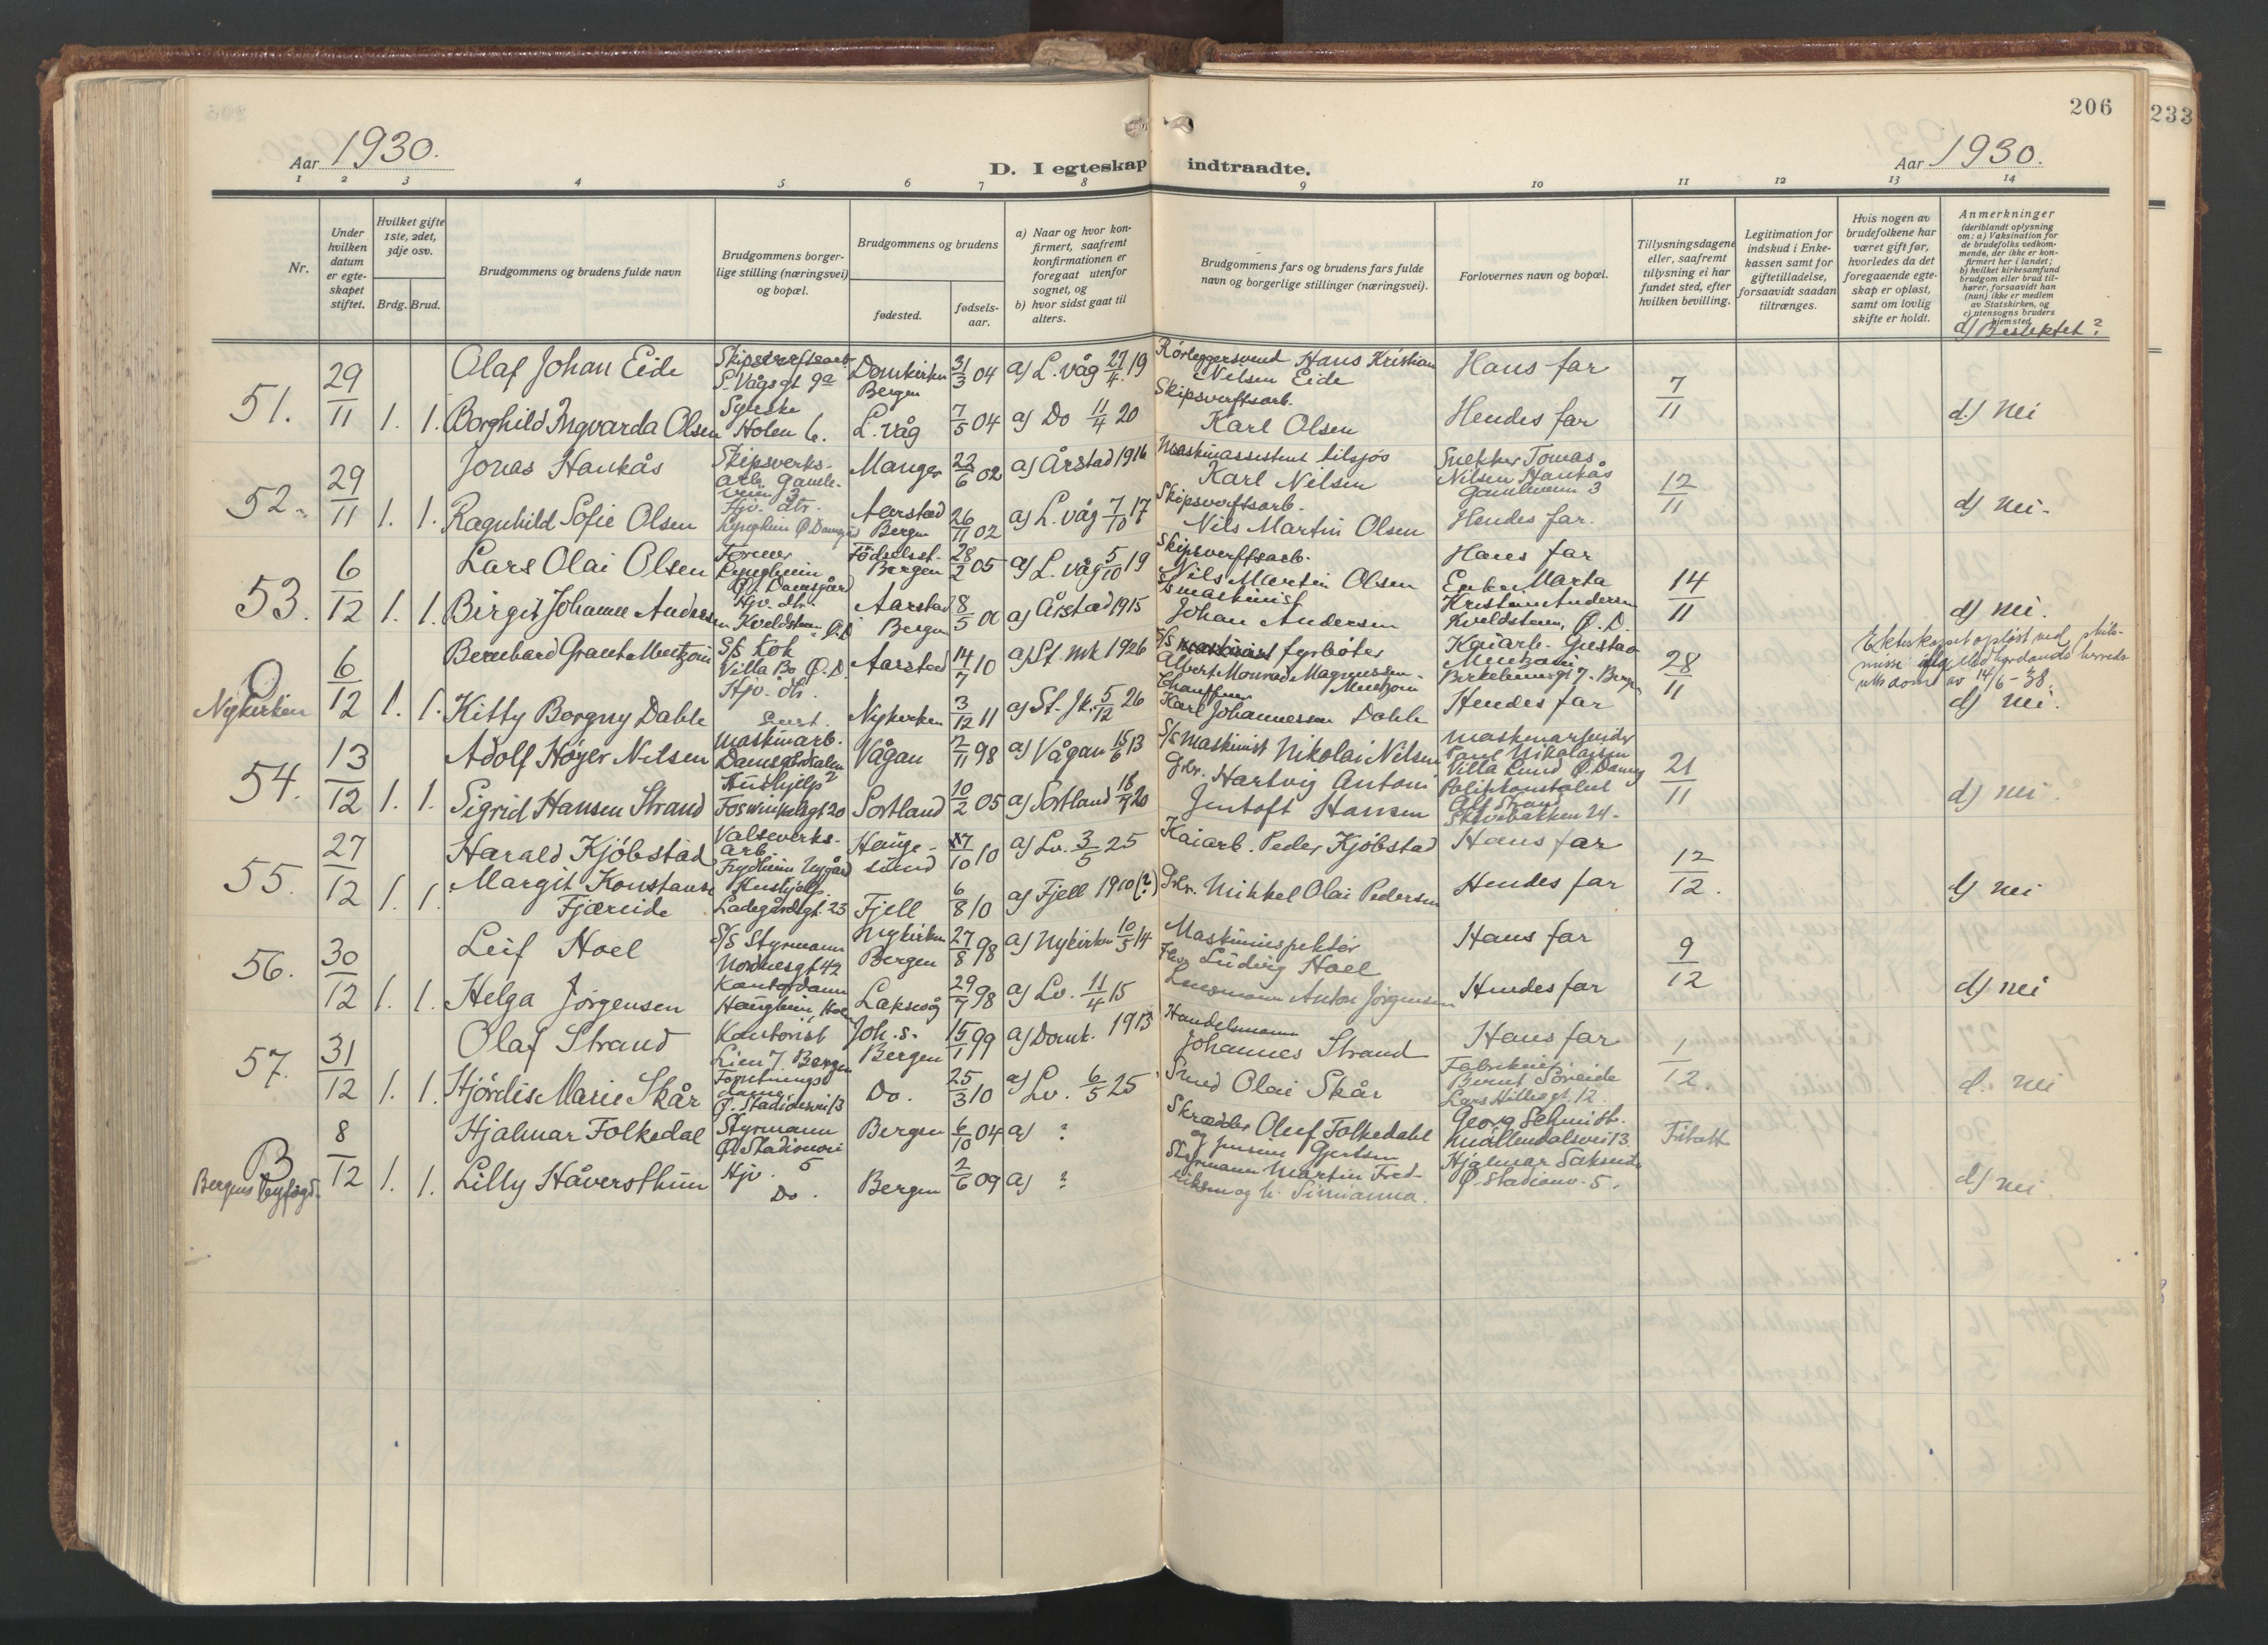 206
233
Aar 1930.
D. I egteskap indtraadte.
Aar 1930.
1 2 3 4 5 6 7 8 9 10 11 12 13 14
Nr.
Under hvilken datum er egte-skapet stiftet.
Hvilket gifte 1ste, 2det, 3dje osv.
Brdg. Brud.
Brudgommens og brudens fulde navn
Brudgommens borger-lige stilling (næringsvei) og bopæl.
Brudgommens og brudens
fødested.
fødsels-aar.
a) Naar og hvor kon-firmert, saafremt konfirmationen er foregaat utenfor sognet, og
b) hvor sidst gaat til alters.
Brudgommens fars og brudens fars fulde navn og borgerlige stillinger (næringsvei).
Forlovernes navn og bopæl.
Tillysningsdagene eller, saafremt tillysning ei har fundet sted, efter hvilken bevilling.
Legitimation for indskud i Enke-kassen samt for giftetilladelse, forsaavidt saadan tiltrænges.
Hvis nogen av brudefolkene har været gift før, hvorledes da det foregaaende egte-skap er opløst, samt om lovlig skifte er holdt.
Anmerkninger (deriblandt oplysning om: a) Vaksination for de brudefolks vedkom-mende, der ikke er kon-firmert her i landet; b) hvilket kirkesamfund brudgom eller brud til-hører, forsaavidt han (hun) ikke er medlem av Statskirken, og c) utensogns bruders hjemsted.
d) Beslektet?
51. 29/11 1. 1.
Olaf Johan Eide Skipsverftsarb. S. Vågsgt 9a Domkirken Bergen 31/3 04 a) L.våg 27/4 19 Rørleggersvend Hans Kristian Nilsen Eide Hans far 7/11
Borghild Ingvarda Olsen Syerske Holen 6. L. våg 7/5 04 a) Do 11/4 20 Skipsverftsarb. Karl Olsen Hendes far d) nei
52. 29/11 1. 1.
Jonas Haukås Skipsverks-arb. Gamleveien 3 Manger 22/6 02 a) Årstad 1916 Maskinassistent tilsjøs Karl Nilsen Snekker Tomas Nilsen Haukås Gamleveien 3 12/11
Ragnhild Sofie Olsen Hjv. dtr. Aarstad Bergen 26/11 02 a) L. våg 7/10 17 Skipsverftsarb. Nils Martin Olsen Hendes far. d) nei.
53. 6/12 1. 1.
Lars Olai Olsen Former Ø. Damsgård Fødselsst. Bergen 28/2 05 a) L. våg 5/10 19 Skipsverftsarb. Nils Martin Olsen Hans far 14/11
Birgit Johanne Andersen Hjv. dtr. Kveldsteen, Ø.D. Aarstad Bergen 8/5 00 a) Årstad 1915 S/s maskinist Johan Andersen Enke Marta Kristine Andersen Kveldsteen, Ø.D. d) nei.
Nykirken 6/12 1. 1.
Bernhard Grant Mentzoni S/s Kok Villa Bo Ø.D. Aarstad 14/7 10 a) St. mk 1926 S/s maskinist fyrbøter Albert Monrad Magnussen Mentzoni Kaiarb. Gustav Mentzoni Birkebeinergt 7. Bergen 28/11
Ekteskapet opløst ved skils-misse ifølge herreds-rettsdom av 14/6-38.
Kitty Borgny Dahle Hjv. dtr. Nykirken 3/12 11 a) St. Jk. 5/12 26 Chauffeur Karl Johannessen Dahle Hendes far d) nei.
54. 13/12 1. 1.
Adolf Høyer Nilsen Maskinarb. Vågan 2/11 98 a) Vågan 15/6 13 S/s maskinist Nikolai Nilsen Maskinarbeider Paul Nikolaisen Villa Lund Ø. Damsg 21/11
Sigrid Hansen Strand Hushjelp Foswinkelsgt 20 Sortland 10/2 05 a) Sortland 18/7 20 Gbr. Hartvig Antoni Jentoft Hansen Politikonstabel Alf Strand Skivebakken 24. d) nei.
55. 27/12 1. 1.
Harald Kjøbstad Valseverks-arb. Frydheim Nygård Hauge-sund 17/10 10 a) Lv. 3/5 25 Kaiarb. Peder Kjøbstad Hans far 12/12.
Margit Konstanse Fjæreide Hushjelp. Ladegårdsgt. 23 Fjell 6/8 10 a) Fjell 1910 (?) Gbr. Mikkel Olai Pedersen Hendes far d) nei
56. 30/12 1. 1.
Leif Hoel S/s Styrmann Nordnesgt 42 Nykirken Bergen 27/8 98 a) Nykirken 10/5 14 Maskininspektør Ludvig Hoel Hans far 9/12
Helga Jørgensen Kontordame Haugheim, Holen Laksevåg 29/7 98 a) Lv. 11/4 15 Lensmann Anton Jørgensen Hendes far d) nei
57. 31/12 1. 1.
Olaf Strand Kontorist Lien 7. Bergen Joh. s. Bergen 15/1 99 a) Domk. 1913 Handelsmann Johannes Strand Hans far 1/12.
Hjørdis Marie Skår Forretningsdame Ø. Stadionvei 13 Do. 25/3 10 a) Lv. 6/5 25 Smed Olai Skår Bernt Søreide Lars Hillesgt. 12. d. nei
B Bergens Byfogd 8/12 1. 1.
Hjalmar Folkedal Styrmann Ø. Stadionvei 5 Bergen 6/10 04 a) ? Skrædder Oluf Folkedahl og Jensine Gjertsen Georg Schmidt. Møllendalsvei 13. Fritatt
Lilly Håversthun Hjv. Do. Bergen 2/6 09 a) ? Styrmann Martin Fred-riksen og h. Simianna. Hjalmar Ø. Stadionv. 5. d) nei